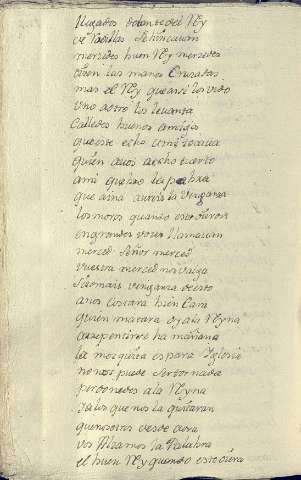 llegados delante del Rey
de Rodillas se hincauan
merzedes buen Rey merzedes
dizen las manos Cruzadas
mas el Rey que ansi los vido
vno a otro los leuanta
Calledes buenos amigos
que este echo a mi tocaua
quien a vos a echo tuerto
a mi quebro la palabra
que aina aureis la venganza
los moros quando esto oieron
en grandes vozes llamauan
merced Señor merced
vuestra merced nos valga
si tomais venganza desto
a vos costara bien Cara
quien matara oy a la Reyna
arrepentirse ha mañana
la mezquita es para Iglesia
no nos puede ser tornada
perdonedes a la Reyna
i a los que nos la quitaran
que nosotros desde aora
vos Alzamos la Palabra
el buen Rey quando esto oiera